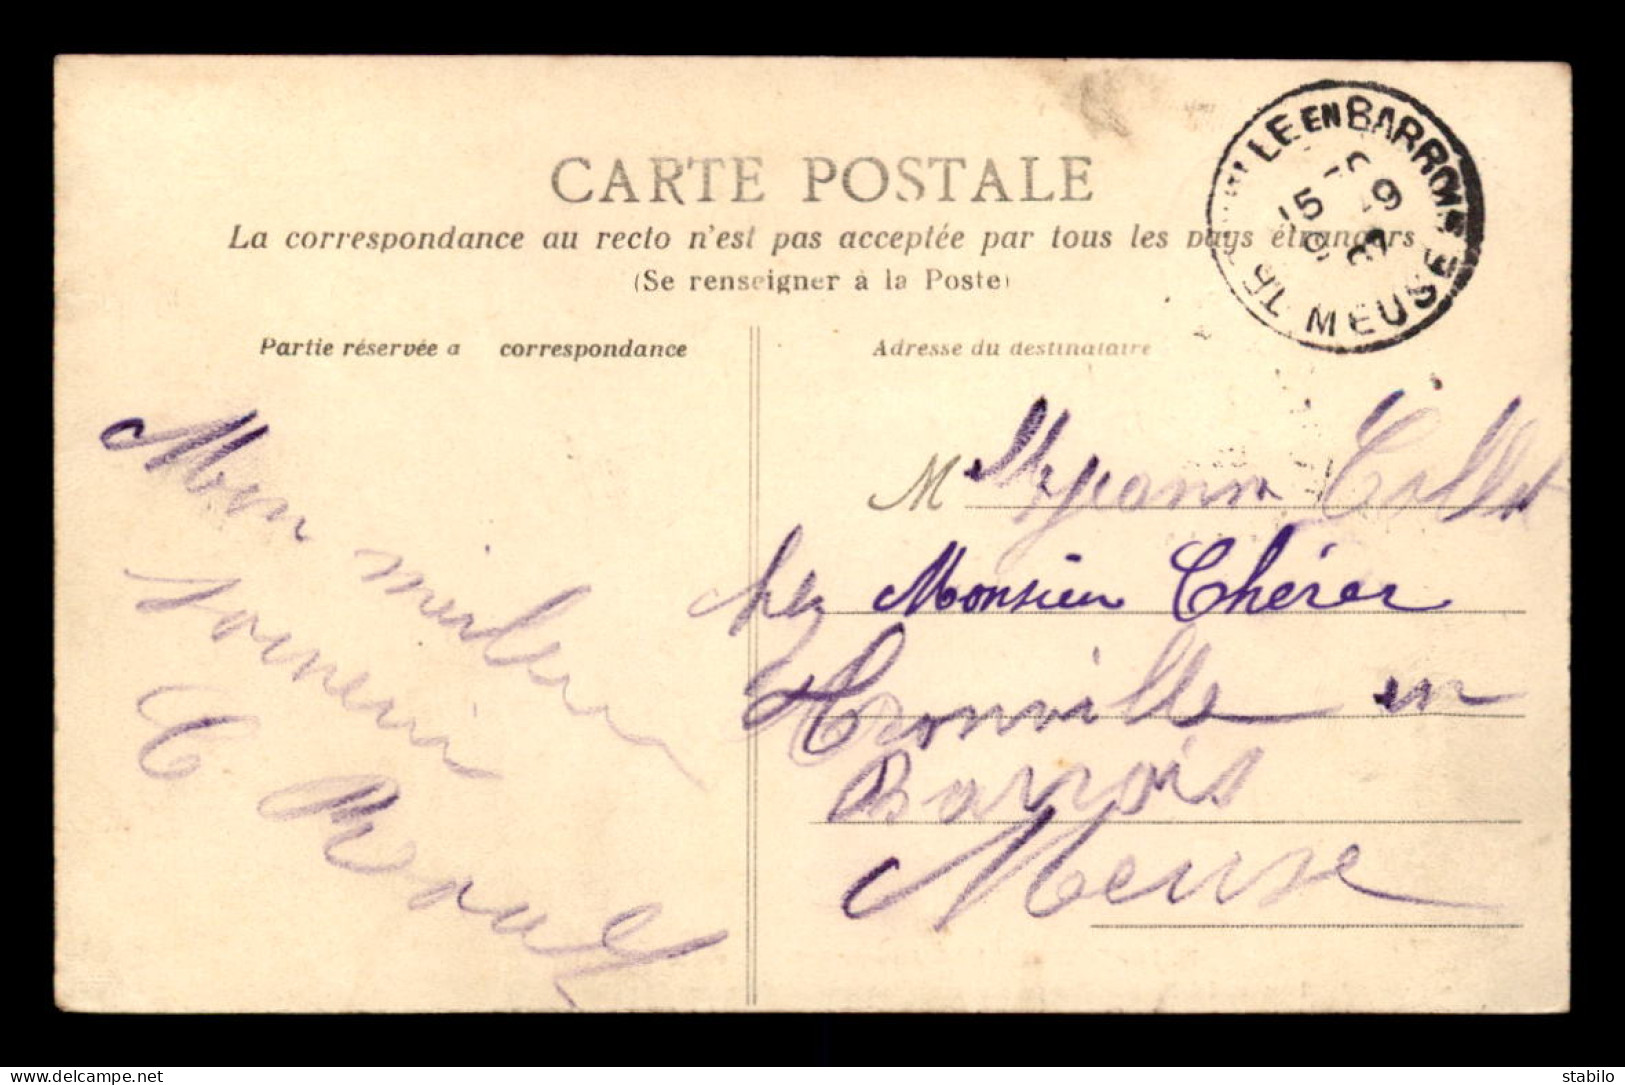 CARTE POSTALE
La correspondance au recto n'est pas acceptée par tous les pays étrangers
(Se renseigner à la Poste)
Partie réservée a correspondance
Adresse du destinataire
LE EN BARROIS
15 9
MEUSE
Mon meilleur
souvenir
C
M
chez Monsieur Chérer
Tronville en
Barrois
Meuse
www.delcampe.net
stabilo